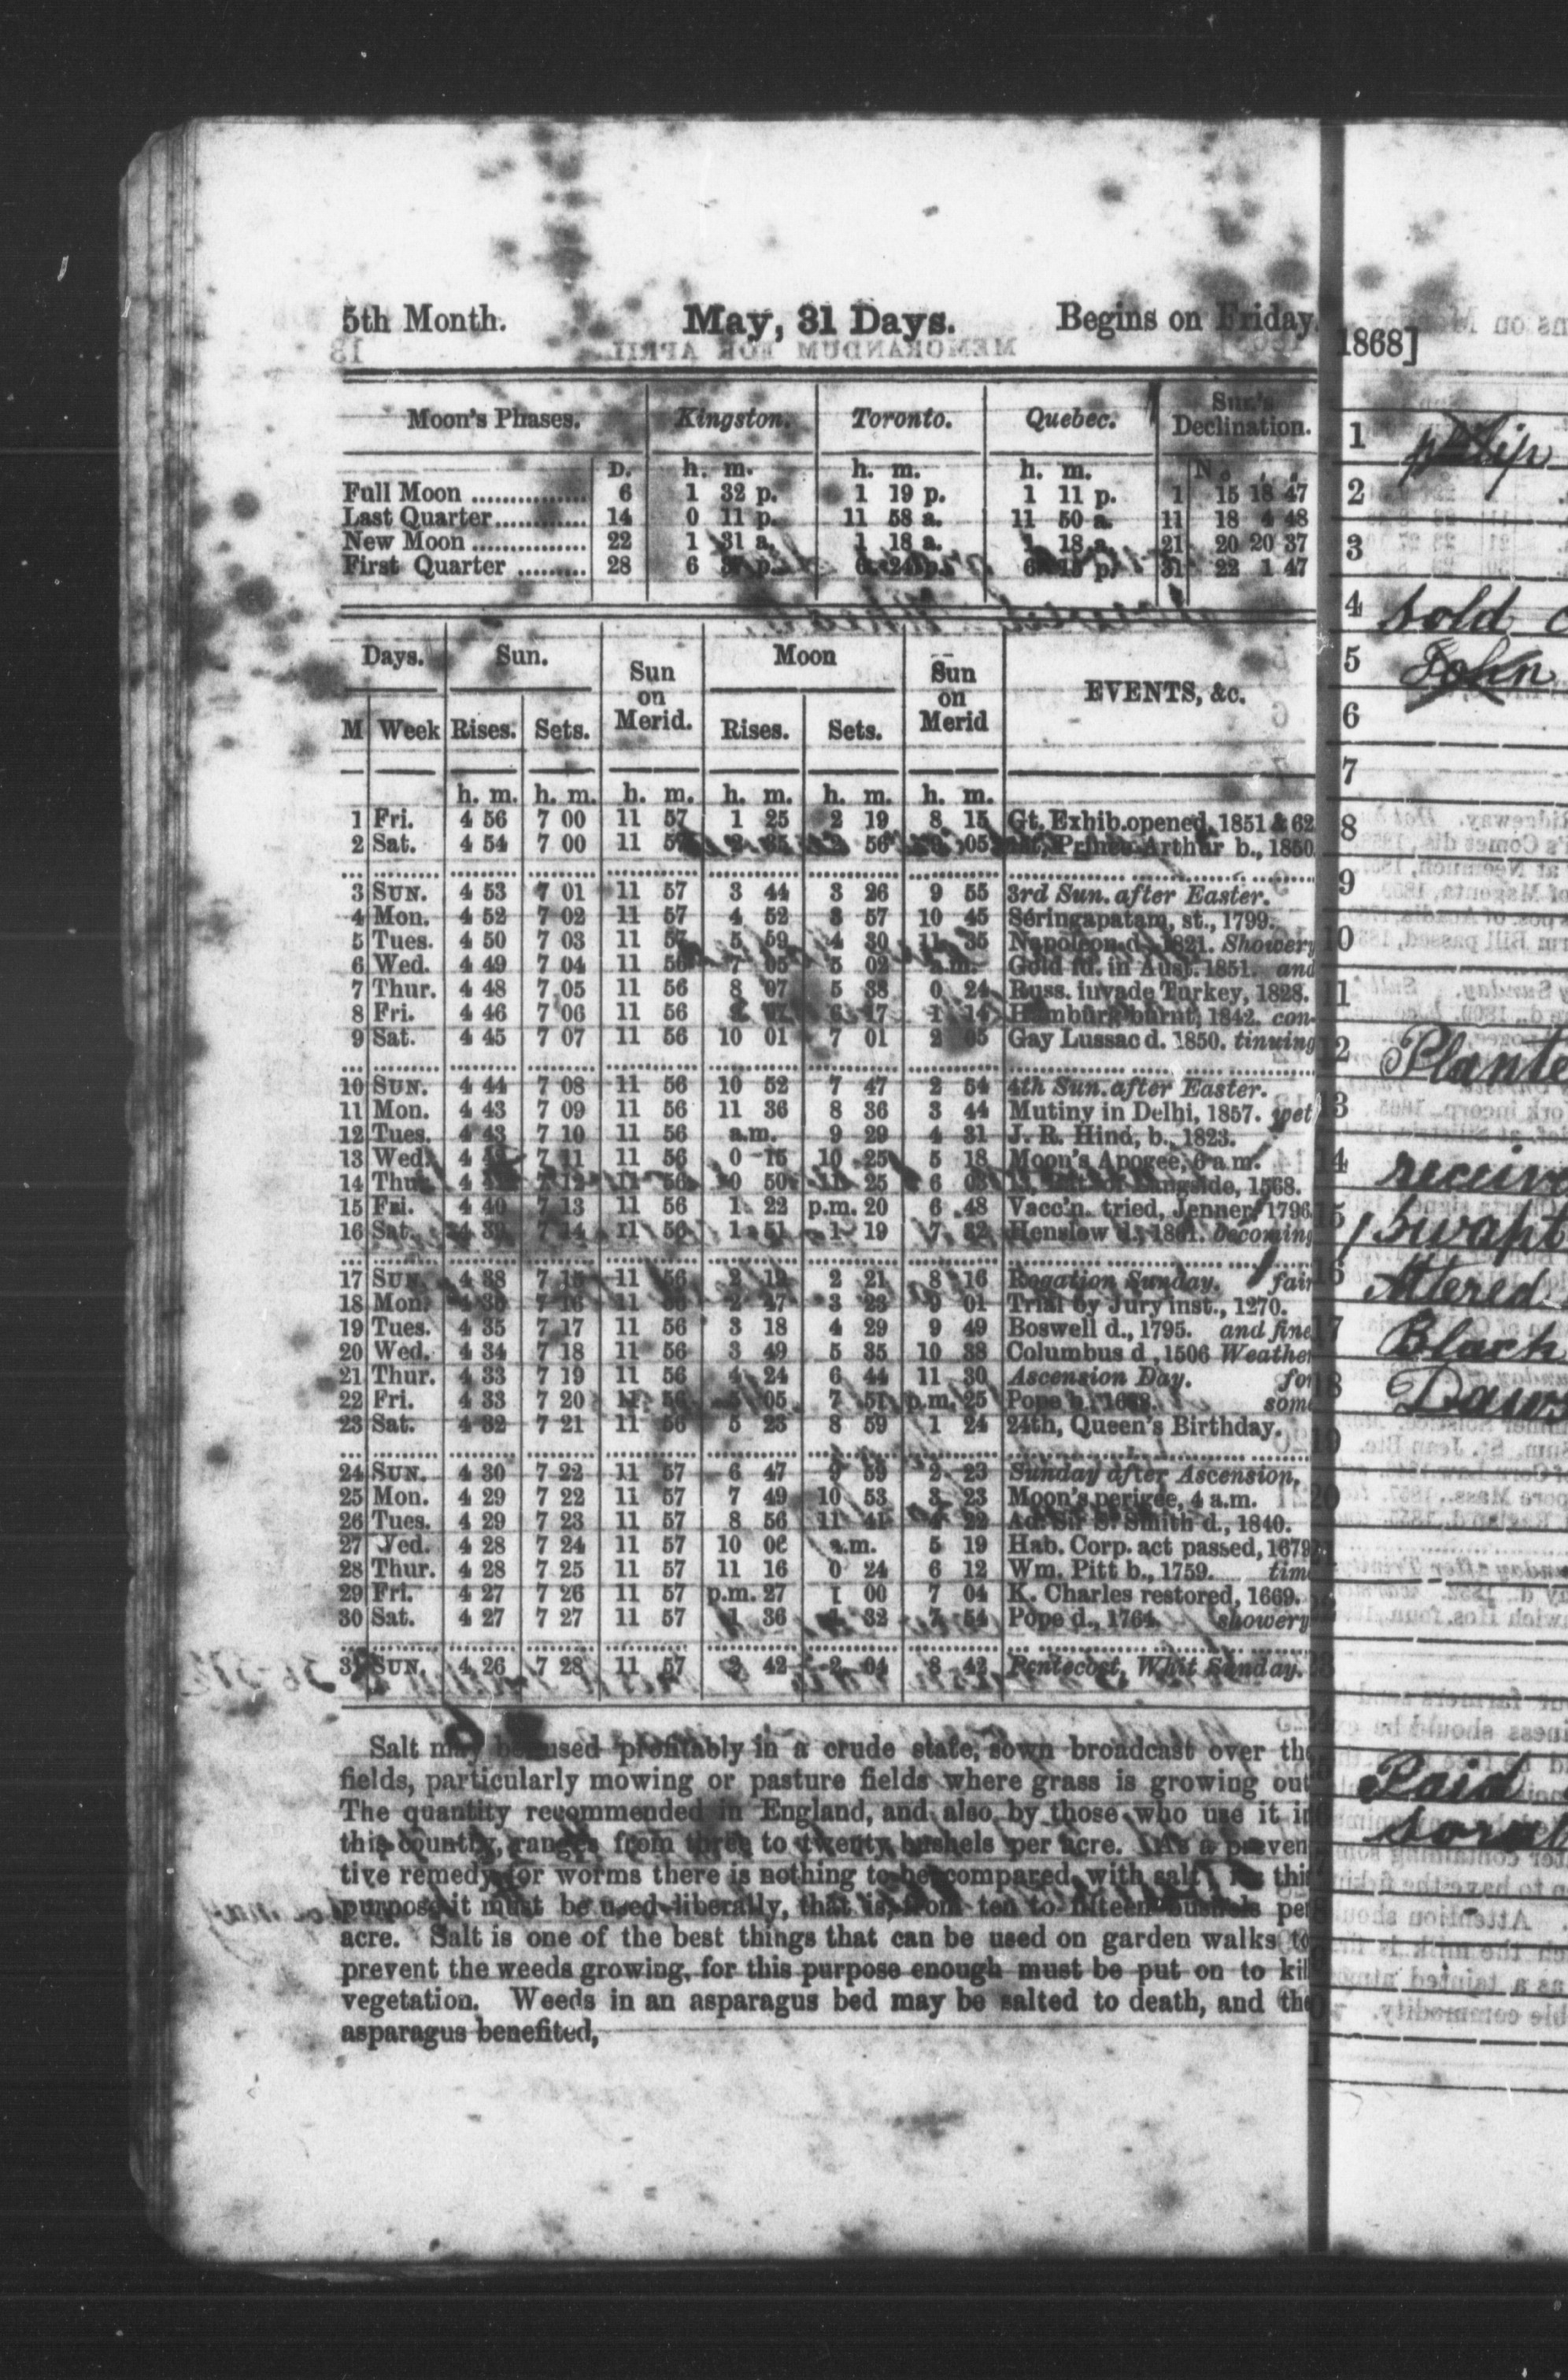 5th Month. May, 31 Days. Begins on Friday.
Moon's Phases. Kingston. Toronto. Quebec. Sun's Declination.
D. h. m. h. m. h. m. N ° ' "
Full Moon ............... 6 1 32 p. 1 19 p. 1 11 p. 1 15 18 47
Last Quarter............. 14 0 11 p. 11 58 a. 11 50 a. 11 18 4 48
New Moon ............... 22 1 31 a. 1 18 a. 1 18 a. 21 20 20 37
First Quarter ......... 28 6 p. 6 24 p. 6 15 p. 31 22 1 47
Days. Sun. Sun on Merid. Moon Sun on Merid EVENTS, &c.
M Week Rises. Sets. Rises. Sets.
h. m. h. m. h. m. h. m. h. m. h. m.
1 Fri. 4 56 7 00 11 57 1 25 2 19 8 15 Gt. Exhib. opened, 1851 & 62
2 Sat. 4 54 7 00 11 57 56 05 Prince Arthur b., 1850
3 SUN. 4 53 7 01 11 57 3 44 3 26 9 55 3rd Sun. after Easter.
4 Mon. 4 52 7 02 11 57 4 52 3 57 10 45 Seringapatam, st., 1799.
5 Tues. 4 50 7 03 11 57 5 59 4 30 11 35 Napoleon d., 1821. Showery
6 Wed. 4 49 7 04 11 56 7 05 5 02 a.m. Gold fd. in Aust. 1851. and
7 Thur. 4 48 7 05 11 56 8 07 5 38 0 24 Russ. invade Turkey, 1828.
8 Fri. 4 46 7 06 11 56 6 17 1 14 Hamburg burnt, 1842. con-
9 Sat. 4 45 7 07 11 56 10 01 7 01 2 05 Gay Lussac d. 1850. tinuing
10 SUN. 4 44 7 08 11 56 10 52 7 47 2 54 4th Sun. after Easter.
11 Mon. 4 43 7 09 11 56 11 36 8 36 3 44 Mutiny in Delhi, 1857. wet
12 Tues. 4 43 7 10 11 56 a.m. 9 29 4 31 J. R. Hind, b., 1823.
13 Wed. 4 7 11 11 56 0 15 10 25 5 18 Moon's Apogee, 6 a.m.
14 Thur. 4 7 12 11 56 0 50 11 25 6 03 Langside, 1568.
15 Fri. 4 40 7 13 11 56 1 22 p.m. 20 6 48 Vacc'n. tried, Jenner, 1796
16 Sat. 4 39 7 14 11 56 1 51 1 19 7 32 Henslow d., 1861. becoming
17 SUN. 4 38 7 15 11 56 2 2 21 8 16 Rogation Sunday. fair
18 Mon. 4 7 16 11 56 2 47 3 23 9 01 Trial by Jury inst., 1270.
19 Tues. 4 35 7 17 11 56 3 18 4 29 9 49 Boswell d., 1795. and fine
20 Wed. 4 34 7 18 11 56 3 49 5 35 10 38 Columbus d ,1506 Weather
21 Thur. 4 33 7 19 11 56 4 24 6 44 11 30 Ascension Day. for
22 Fri. 4 33 7 20 11 56 05 7 51 p.m. 25 Pope b., 1688. some
23 Sat. 4 32 7 21 11 56 5 23 8 59 1 24 24th, Queen's Birthday.
24 SUN. 4 30 7 22 11 57 6 47 9 59 2 23 Sunday after Ascension,
25 Mon. 4 29 7 22 11 57 7 49 10 53 3 23 Moon's perigee, 4 a.m.
26 Tues. 4 29 7 23 11 57 8 56 11 41 4 22 Ad. Sir S. Smith d., 1840.
27 Wed. 4 28 7 24 11 57 10 06 a.m. 5 19 Hab. Corp. act passed, 1679
28 Thur. 4 28 7 25 11 57 11 16 0 24 6 12 Wm. Pitt b., 1759. time
29 Fri. 4 27 7 26 11 57 p.m. 27 1 00 7 04 K. Charles restored, 1669.
30 Sat. 4 27 7 27 11 57 1 36 1 32 7 54 Pope d., 1764. showery
31 SUN. 4 26 7 28 11 57 2 42 2 04 8 42 Pentecost, Whit Sunday.
Salt may be used profitably in a crude state, sown broadcast over the
fields, particularly mowing or pasture fields where grass is growing out
The quantity recommended in England, and also by those who use it in
this country, ranges from three to twenty bushels per acre. As a preven
tive remedy for worms there is nothing to be compared with salt. this
purpose it must be used liberally, that is, from ten to fifteen bushels per
acre. Salt is one of the best things that can be used on garden walks to
prevent the weeds growing, for this purpose enough must be put on to kill
vegetation. Weeds in an asparagus bed may be salted to death, and the
asparagus benefited,
1868]
1
2
3
4 Sold
5 John
6
7
8
9
10
11
12 Plante
13
14 receiv
15 Swapt
16 Altered
17 Black
18 Daws
19
20
Paid